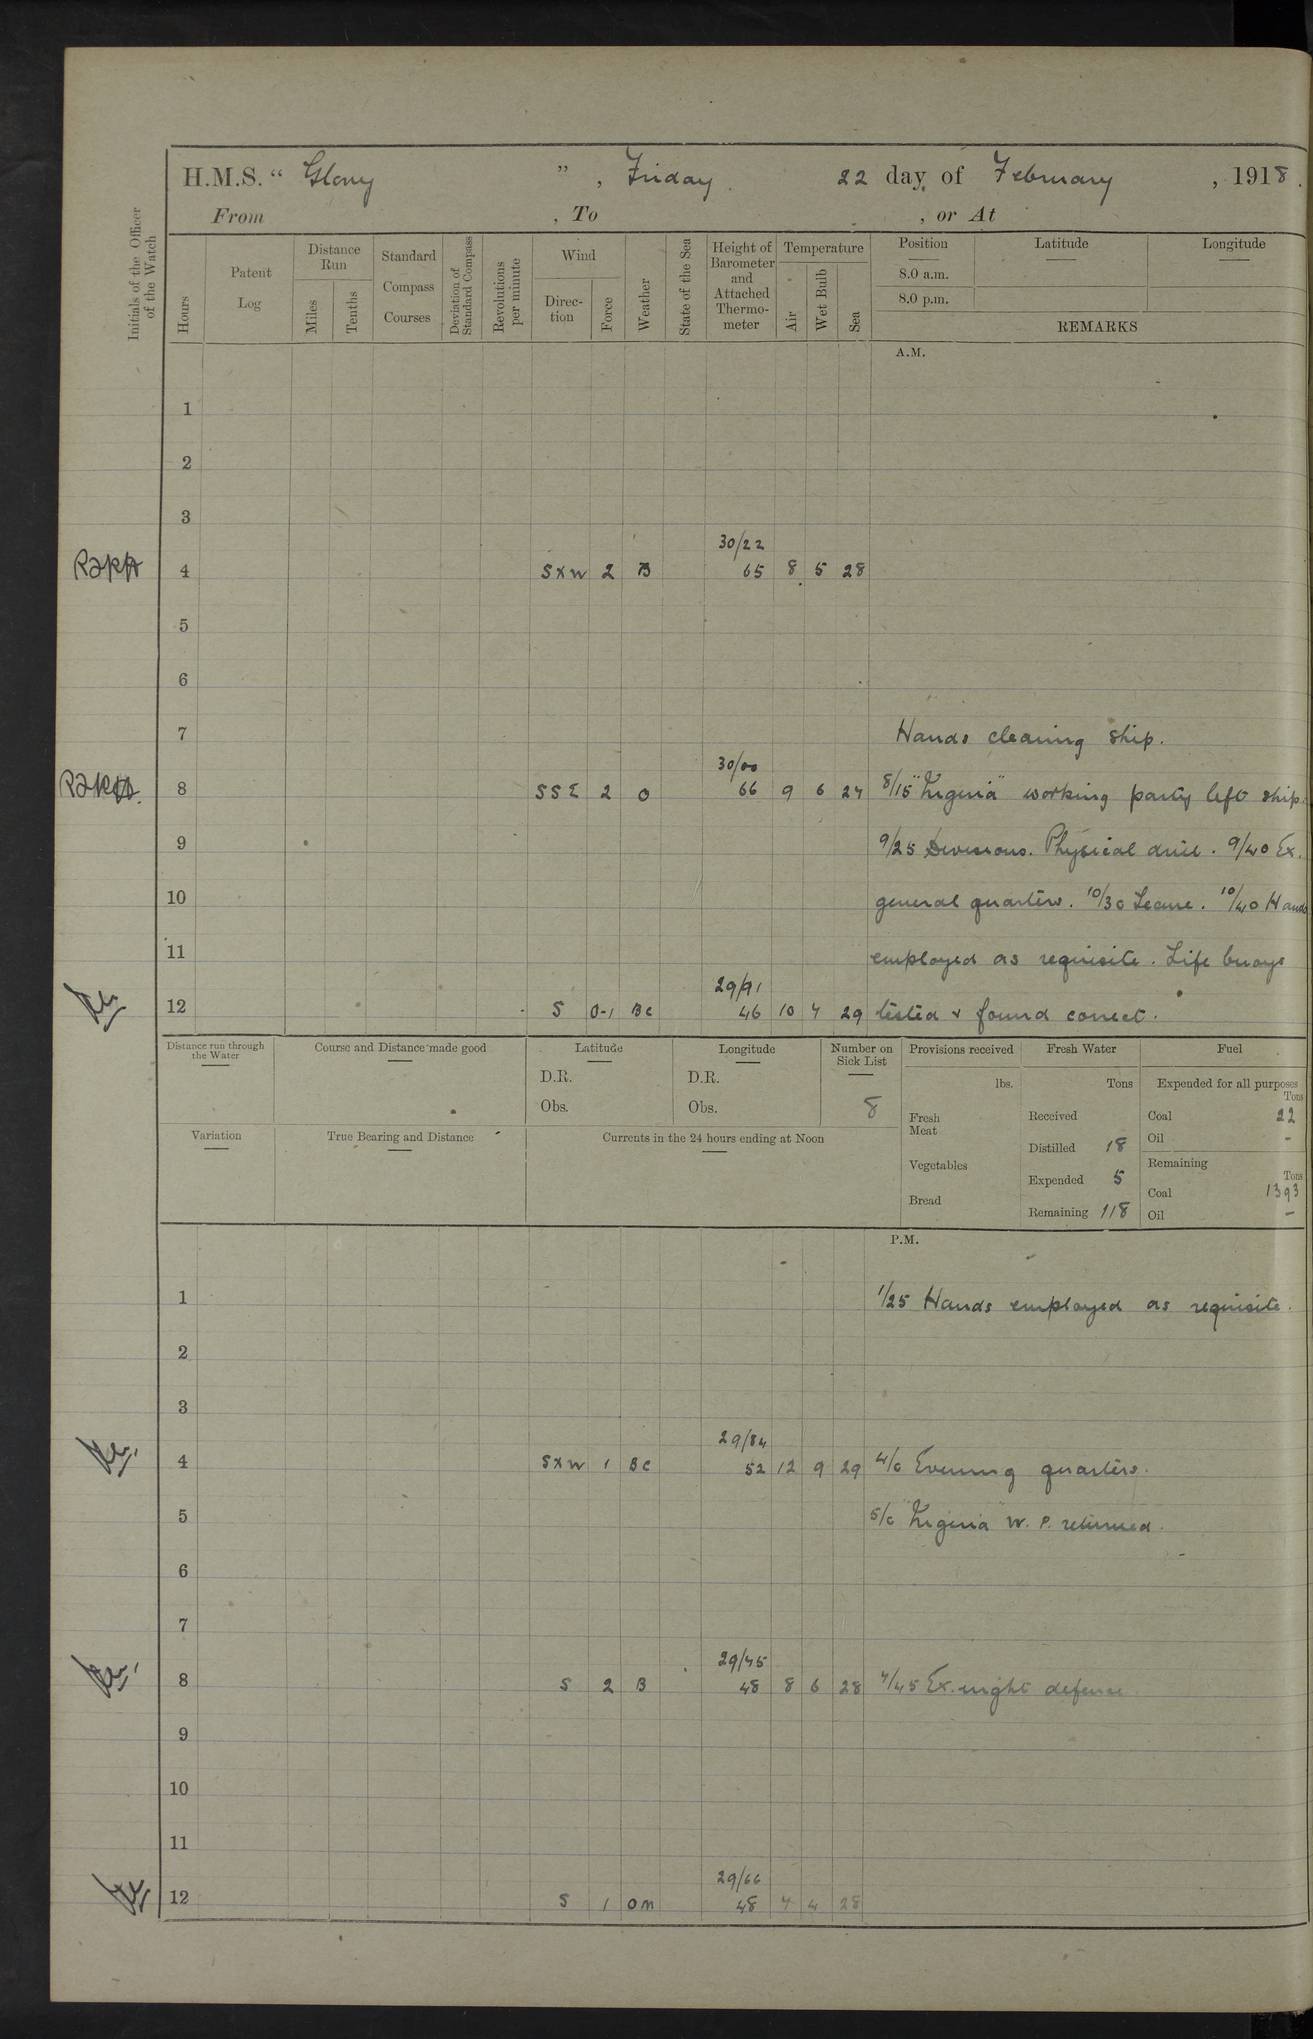 H.M.S. “ Glory ” , Friday 22 day of February , 1918.
From , To , or At
Initials of the Officer of the Watch
Hours
Patent Log
Distance Run
Miles
Tenths
Standard Compass Courses
Deviation of Standard Compass
Revolutions per minute
Wind
Direc-tion
Force
Weather
State of the Sea
Height of Barometer and Attached Thermo-meter
Temperature
Air
Wet Bulb
Sea
Position
8.0 a.m.
8.0 p.m.
Latitude
Longitude
REMARKS
A.M.
1
2
3
30/22
4 SXW 2 B 65 8 5 28
5
6
7 Hands cleaning ship.
30/00
8 SSE 2 O 66 9 6 27 8/15 working party left ship.
9 9/25 Divisions. Physical drill. 9/40 Ex.
10 general quarters. 10/30 Leave. 10/40 Hands
11 employed as requisite. Life buoys
29/91
12 S 0-1 BC 46 10 7 29 tested & found correct.
Distance run through the Water
Course and Distance made good
Latitude
D.R.
Obs.
Longitude
D.R.
Obs.
Number on Sick List
8
Variation
True Bearing and Distance
Currents in the 24 hours ending at Noon
Provisions received
lbs.
Fresh Meat
Vegetables
Bread
Fresh Water
Tons
Received
Distilled 18
Expended 5
Remaining 118
Fuel
Expended for all purposes
Tons
Coal 22
Oil -
Remaining
Tons
Coal 1393
Oil -
P.M.
1 1/25 Hands employed as requisite.
2
3
29/84
4 SXW 1 BC 52 12 9 29 4/0 Evening quarters.
5 5/0 W. P. returned.
6
7
29/75
8 S 2 B 48 8 6 28 7/45 Ex. night defence
9
10
11
29/66
12 S 1 om 48 7 4 28